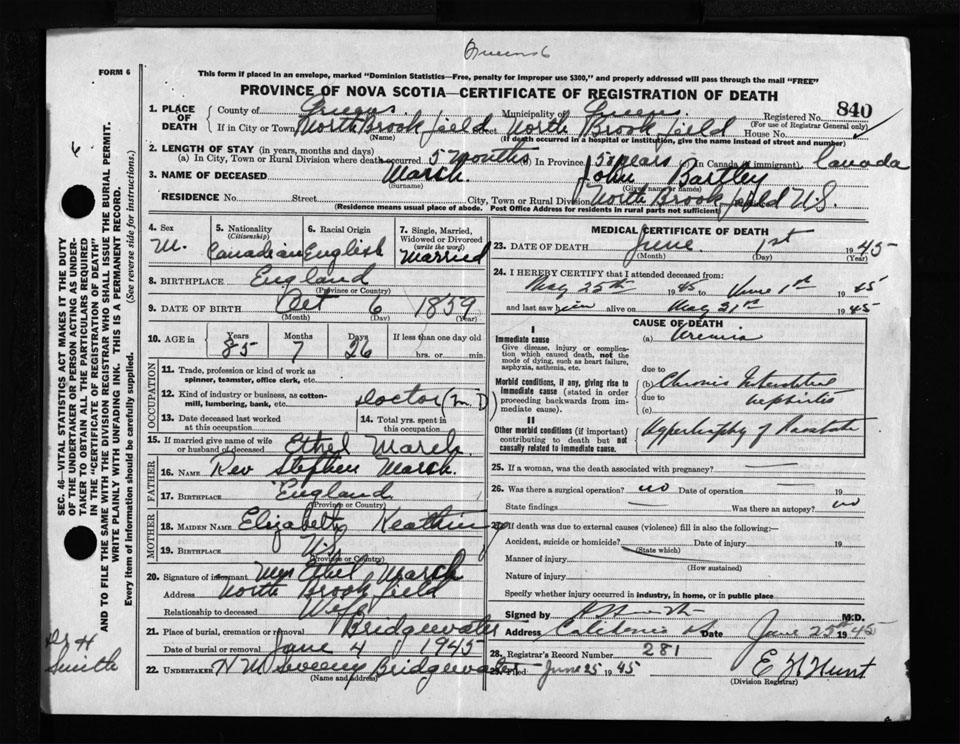 Queens 6
FORM 6
This form if placed in an envelope, marked "Dominion Statistics—Free, penalty for improper use $300," and properly addressed will pass through the mail "FREE"
PROVINCE OF NOVA SCOTIA—CERTIFICATE OF REGISTRATION OF DEATH
840
1. PLACE OF DEATH County of Queens Municipality of Queens Registered No.
(For use of Registrar General only)
If in City or Town North Brookfield Street North Brookfield House No.
(Name) (If death occurred in a hospital or institution, give the name instead of street and number)
2. LENGTH OF STAY (in years, months and days)
(a) In City, Town or Rural Division where death occurred 5 months (b) In Province 58 years In Canada (if immigrant) Canada
3. NAME OF DECEASED March John Bartley
(Surname) (Given name or names)
RESIDENCE No. Street City, Town or Rural Division North Brookfield N.S.
(Residence means usual place of abode. Post Office Address for residents in rural parts not sufficient)
4. Sex M.
5. Nationality (Citizenship) Canadian
6. Racial Origin English
7. Single, Married, Widowed or Divorced (write the word) Married
8. BIRTHPLACE England
(Province or Country)
9. DATE OF BIRTH Oct 6 1859
(Month) (Day) (Year)
10. AGE in Years Months Days If less than one day old
85 7 26 hrs. or min.
OCCUPATION
11. Trade, profession or kind of work as spinner, teamster, office clerk, etc.
12. Kind of industry or business, as cotton-mill, lumbering, bank, etc. Doctor (M.D)
13. Date deceased last worked at this occupation
14. Total yrs. spent in this occupation
15. If married give name of wife or husband of deceased Ethel March
FATHER
16. NAME Rev Stephen March.
17. BIRTHPLACE England
MOTHER
18. MAIDEN NAME Elizabeth Keathing
19. BIRTHPLACE N.S.
(Province or Country)
20. Signature of informant Mrs Ethel March
Address North Brookfield
Relationship to deceased Wife
21. Place of burial, cremation or removal Bridgewater
Date of burial or removal June 4 1945
22. UNDERTAKER N M Sweeny Bridgewater
(Name and address)
MEDICAL CERTIFICATE OF DEATH
23. DATE OF DEATH June 1st 1945
(Month) (Day) (Year)
24. I HEREBY CERTIFY that I attended deceased from:
May 25th 1945 to June 1st 1945
and last saw him alive on May 31st 1945
CAUSE OF DEATH
I
Immediate cause
Give disease, injury or complication which caused death, not the mode of dying, such as heart failure, asphyxia, asthenia, etc.
(a) Uremia
due to
Morbid conditions, if any, giving rise to immediate cause (stated in order proceeding backwards from immediate cause).
(b) Chronic Interstitial
due to nephritis
(c)
II
Other morbid conditions (if important) contributing to death but not causally related to immediate cause.
Hypertrophy of Prostate
25. If a woman, was the death associated with pregnancy?
26. Was there a surgical operation? no Date of operation 19
State findings Was there an autopsy? no
27. If death was due to external causes (violence) fill in also the following:—
Accident, suicide or homicide? Date of injury 19
(State which)
Manner of injury
(How sustained)
Nature of injury
Specify whether injury occurred in industry, in home, or in public place
Signed by M.D.
Address Caledonia Date June 25th 1945
28. Registrar's Record Number 281
29. Filed June 25 1945
(Division Registrar)
SEC. 46—VITAL STATISTICS ACT MAKES IT THE DUTY OF THE UNDERTAKER OR PERSON ACTING AS UNDERTAKER TO OBTAIN ALL THE PARTICULARS REQUIRED IN THE "CERTIFICATE OF REGISTRATION OF DEATH" AND TO FILE THE SAME WITH THE DIVISION REGISTRAR WHO SHALL ISSUE THE BURIAL PERMIT.
WRITE PLAINLY WITH UNFADING INK. THIS IS A PERMANENT RECORD.
Every item of information should be carefully supplied. (See reverse side for instructions).
Dr H
Smith